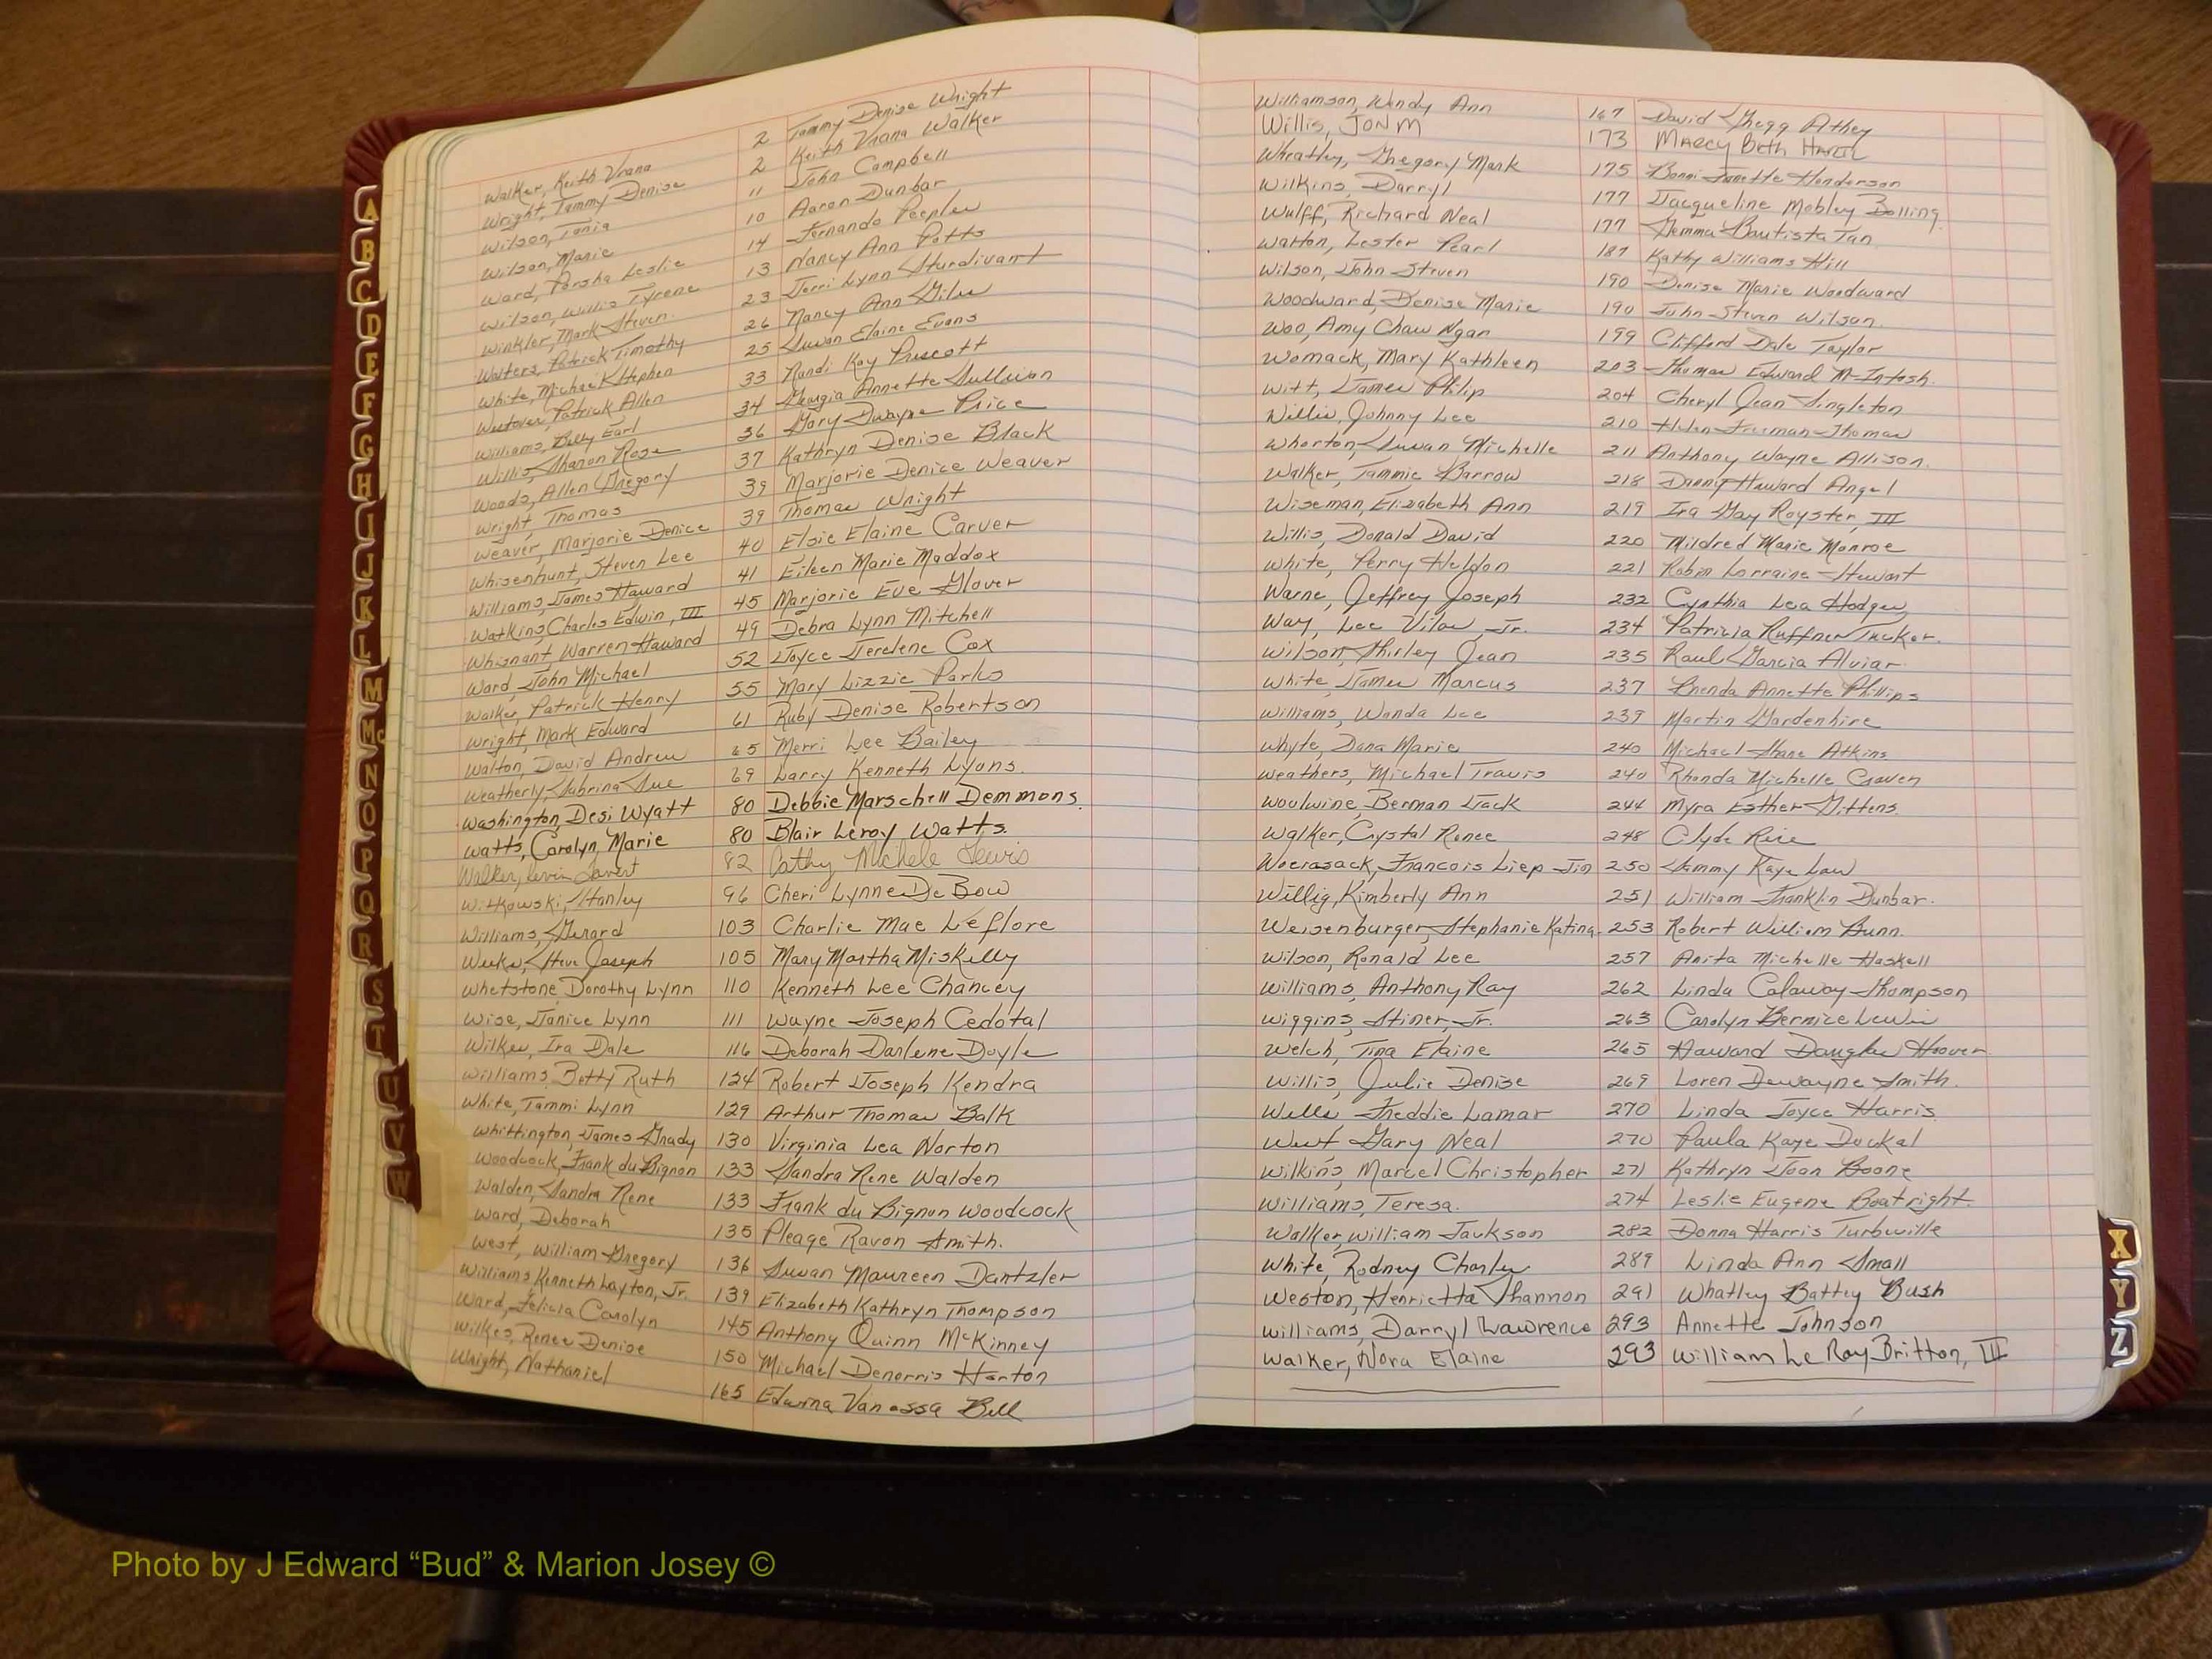 Walker, Keith Vrana 2 Tammy Denise Wright
Wright, Tammy Denise 2 Keith Vrana Walker
Wilson, Tania 11 John Campbell
Wilson, Marie 10 Aaron Dunbar
Ward, Porsha Leslie 14 Fernando Peeples
Wilson, Willis Tyrone 13 Nancy Ann Potts
Winkler, Mark Steven 23 Terri Lynn Sturdivant
Walters, Patrick Timothy 26 Nancy Ann Giles
White, Michael Stephen 25 Susan Elaine Evans
Westover, Patrick Allen 33 Randi Kay Prescott
Williams, Billy Earl 34 Georgia Annette Sullivan
Willis, Sharon Rose 36 Gary Dwayne Price
Woods, Allen Gregory 37 Kathryn Denise Black
Wright, Thomas 39 Marjorie Denice Weaver
Weaver, Marjorie Denice 39 Thomas Wright
Whisenhunt, Steven Lee 40 Elsie Elaine Carver
Williams, James Howard 41 Eileen Marie Maddox
Watkins, Charles Edwin, III 45 Marjorie Eve Glover
Whisnant Warren Howard 49 Debra Lynn Mitchell
Ward, John Michael 52 Joyce Jerelene Cox
Walker, Patrick Henry 55 Mary Lizzie Parks
Wright, Mark Edward 61 Ruby Denise Robertson
Walton, David Andrew 65 Merri Lee Bailey
Weatherly, Sabrina Sue 69 Larry Kenneth Lyons.
Washington, Desi Wyatt 80 Debbie Marschell Demmons.
Watts, Carolyn, Marie 80 Blair Leroy Watts.
Walker, Kevin 82 Cathy Michele Lewis
Witkowski, Stanley 96 Cheri Lynne De Bow
Williams, Gerard 103 Charlie Mae Leflore
Weeks, Steve Joseph 105 Mary Martha Miskelly
Whetstone, Dorothy Lynn 110 Kenneth Lee Chancey
Wise, Janice Lynn 111 Wayne Joseph Cedotal
Wilkes, Ira Dale 116 Deborah Darlene Doyle
Williams, Betty Ruth 124 Robert Joseph Kendra
White, Tammi Lynn 129 Arthur Thomas Balk
Whittington, James Grady 130 Virginia Lea Norton
Woodcock, Frank du Bignon 133 Sandra Rene Walden
Walden, Sandra Rene 133 Frank du Bignon Woodcock
Ward, Deborah 135 Pleage Ravon Smith.
West, William Gregory 136 Susan Maureen Dantzler
Williams Kenneth Layton, Jr. 139 Elizabeth Kathryn Thompson
Ward, Felicia Carolyn 145 Anthony Quinn McKinney
Wilkes, Renee Denise 150 Michael Denorris Horton
Wright, Nathaniel 165 Edwina Vanessa Bell
Williamson, Wendy Ann 167 David Gregg Athey
Willis, JON M 173 MARCY Beth
Wheatley, Gregory Mark 175 Bonni Janette Henderson
Wilkins, Darryl 177 Jacqueline Mobley Bolling
Wulff, Richard Neal 177 Gemma Bautista Tan
Walton, Lester Pearl 187 Kathy Williams Hill
Wilson, John Steven 190 Denise Marie Woodward
Woodward, Denise Marie 190 John Steven Wilson.
Woo, Amy Chaw Ngan 199 Clifford Dale Taylor
Womack, Mary Kathleen 203 Thomas Edward McIntosh.
Witt, James Philip 204 Cheryl Jean Singleton
Willis, Johnny Lee 210 Helen Freeman Thomas
Whorton, Susan Michelle 211 Anthony Wayne Allison.
Walker, Tammie Barrow 218 Danny Howard Angel
Wiseman, Elizabeth Ann 219 Ira Gay Royster, III
Willis, Donald David 220 Mildred Marie Monroe
White, Perry Heldon 221 Robin Lorraine Stewart
Warne, Jeffrey Joseph 232 Cynthia Lea Hodges
Way, Lee Vilow, Jr. 234 Patricia Ruffner Tucker.
Wilson, Shirley Jean 235 Raul Garcia Alviar
White, James Marcus 237 Brenda Annette Phillips
Williams, Wanda Lee 239 Martin Gardenhire
Whyte, Dana Marie 240 Michael Shane Atkins
Weathers, Michael Travis 240 Rhonda Michelle Craven
Woolwine, Berman Jack 244 Myra Esther Gittens.
Walker, Crystal Renee 248 Clyde Rice
Woerasack, Francois Liep Jin 250 Sammy Kaye Law
Willig, Kimberly Ann 251 William Franklin Dunbar.
Weisenburger, Stephanie Katina 253 Robert William Bunn.
Wilson, Ronald Lee 257 Anita Michelle Haskell
Williams, Anthony Ray 262 Linda Calaway Thompson
Wiggins, Stiner, Jr. 263 Carolyn Bernice Lewis
Welch, Tina Elaine 265 Howard Douglas Hoover
Willis, Julie Denise 269 Loren Dewayne Smith.
Wells Freddie Lamar 270 Linda Joyce Harris
West Gary Neal 270 Paula Kaye Duckal
Wilkins, Marcel Christopher 271 Kathryn Joan Boone
Williams, Teresa. 274 Leslie Eugene Boatright.
Walker, William Jackson 282 Donna Harris Turbeville
White, Rodney Charles 289 Linda Ann Small
Weston, Henrietta Shannon 291 Whatley Battey Bush
Williams, Darryl Lawrence 293 Annette Johnson
Walker, Nora Elaine 293 William Le Roy Britton, III
A
B
C
D
E
F
G
H
I
J
K
L
M
Mc
N
O
P
Q
R
S
T
U
V
W
X
Y
Z
Photo by J Edward “Bud” & Marion Josey ©